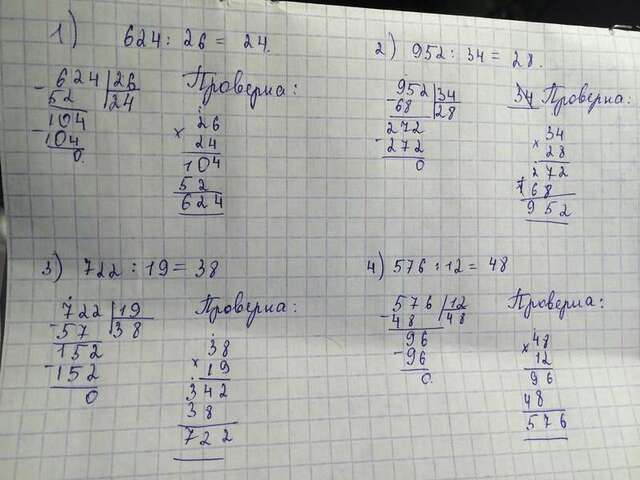 1) 624 : 26 = 24.
624 | 26
52 | 24
104
104
0
Проверка:
26
× 24
104
52
624
2) 952 : 34 = 28.
952 | 34
68 | 28
272
272
0
34 Проверка:
34
× 28
272
68
952
3) 722 : 19 = 38
722 | 19
57 | 38
152
152
0
Проверка:
38
× 19
342
38
722
4) 576 : 12 = 48
576 | 12
48 | 48
96
96
0
Проверка:
48
× 12
96
48
576